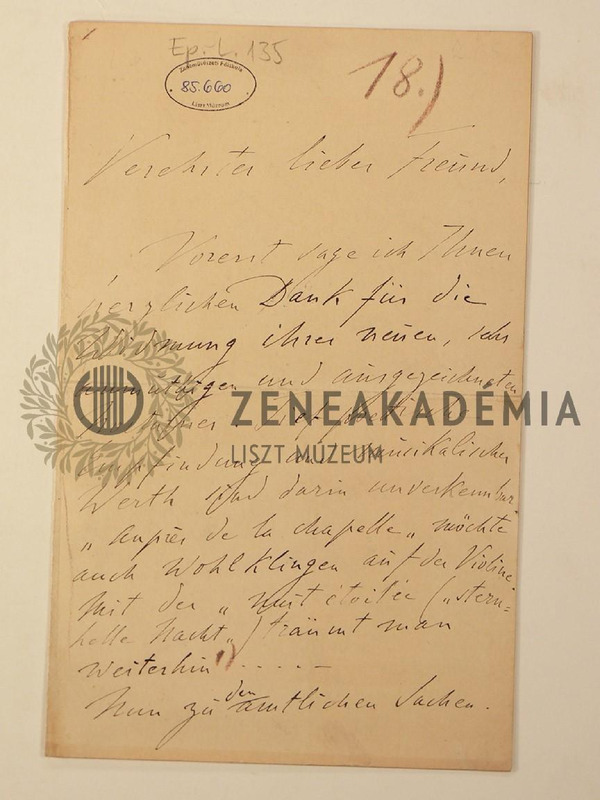 Ep.-L. 135
Zeneművészeti Főiskola
85.660
Liszt Múzeum
18.)
Verehrter lieber Freund,
Vorerst sage ich Ihnen
herzlichen Dank für die
Widmung ihrer neuen, sehr
anmuthigen und ausgezeichneten
ZENEAKADÉMIA
LISZT MÚZEUM
Empfindung und musikalischer
Werth sind darin unverkennbar
„auprès de la chapelle„ möchte
auch wohlklingen auf der Violine
mit der „nuit étoilée („stern=
helle Nacht„) träumt man
weiterhin - - - - -
Nun zu den amtlichen Sachen.